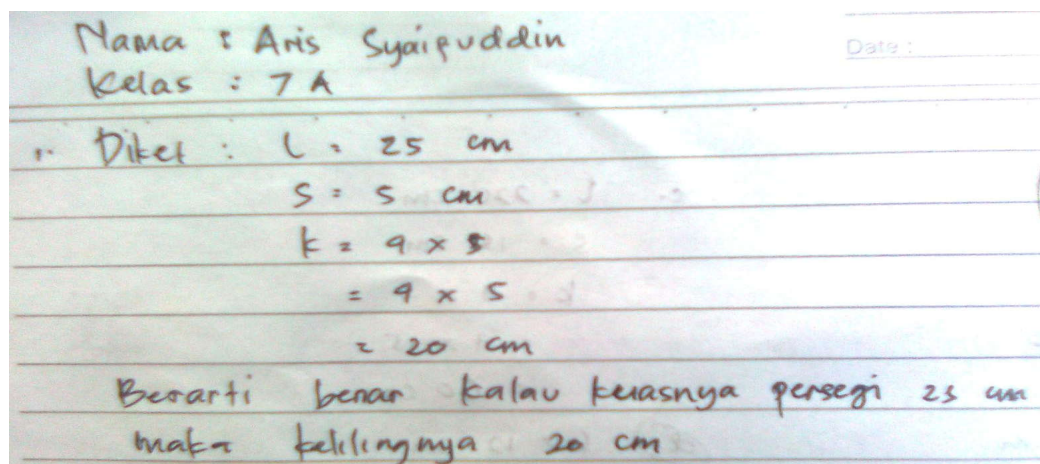 Nama : Aris Syaipuddin
Date :
Kelas : 7 A
1. Diket : L = 25 cm
S = 5 cm
k = 4 x s
= 4 x 5
= 20 cm
Berarti benar kalau keluasnya persegi 25 cm
maka kelilingnya 20 cm